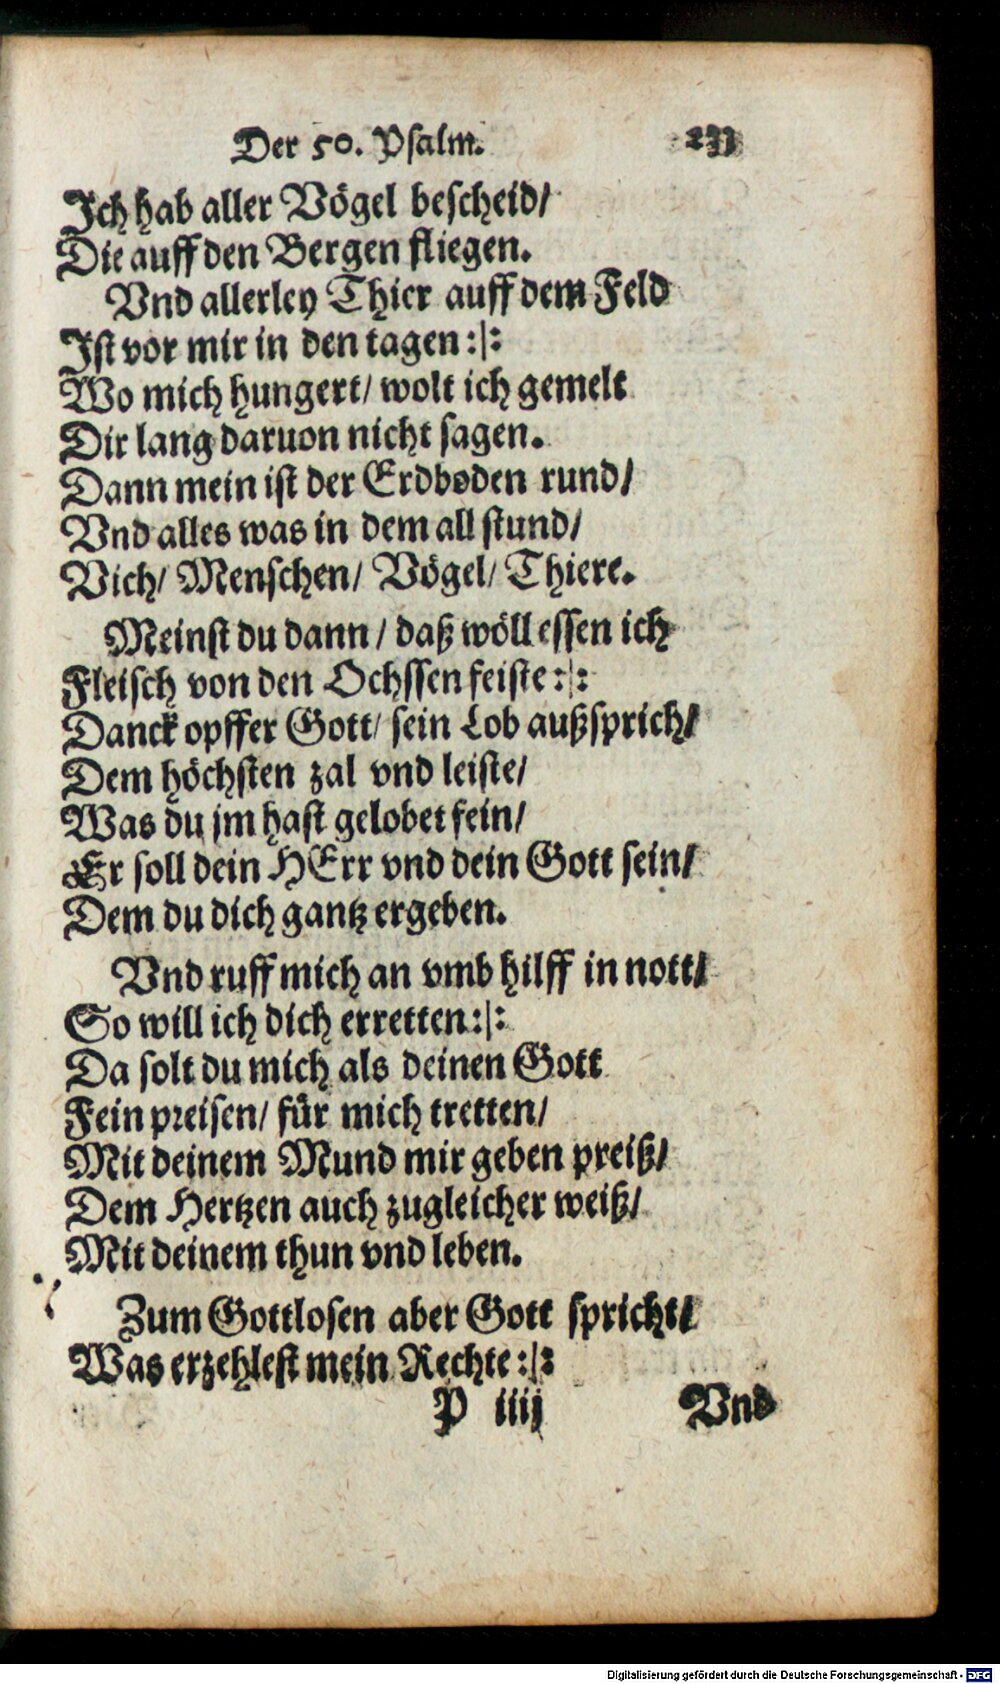 Der 50. Psalm. 233
Ich hab aller Vögel bescheid/
Die auff den Bergen fliegen.
Vnd allerley Thier auff dem Feld
Ist vor mir in den tagen :|:
Wo mich hungert/ wolt ich gemelt
Dir lang daruon nicht sagen.
Dann mein ist der Erdboden rund/
Vnd alles was in dem all stund/
Vich/ Menschen/ Vögel/ Thiere.
Meinst du dann/ daß wöll essen ich
Fleisch von den Ochssen feiste :|:
Danck opffer Gott/ sein Lob außsprich/
Dem höchsten zal vnd leiste/
Was du jm hast gelobet fein/
Er soll dein HErr vnd dein Gott sein/
Dem du dich gantz ergeben.
Vnd ruff mich an vmb hilff in nott/
So will ich dich erretten :|:
Da solt du mich als deinen Gott
Fein preisen/ für mich tretten/
Mit deinem Mund mir geben preiß/
Dem Hertzen auch zugleicher weiß/
Mit deinem thun vnd leben.
Zum Gottlosen aber Gott spricht/
Was erzehlest mein Rechte :|:
P iiij Vnd
Digitalisierung gefördert durch die Deutsche Forschungsgemeinschaft - DFG